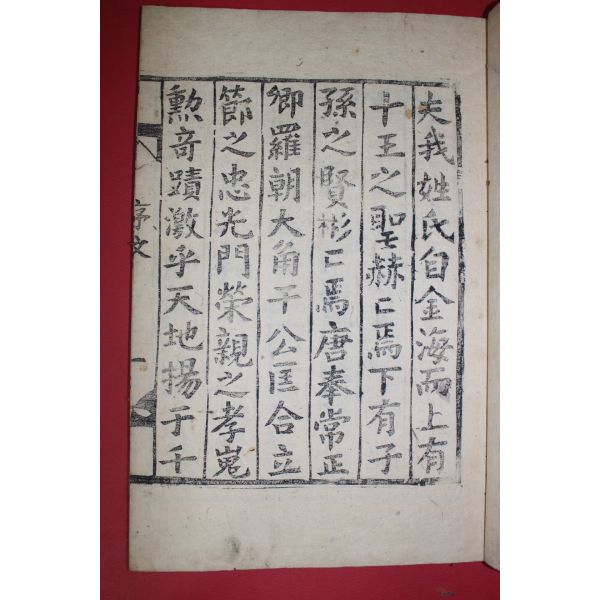 夫我姓氏自金海而上有
十王之聖赫〻焉下有子
孫之賢彬〻焉唐奉常正
卿羅朝大角干公匡合立
節之忠光門榮親之孝嵬
勳奇蹟激乎天地揚于千
序文 一